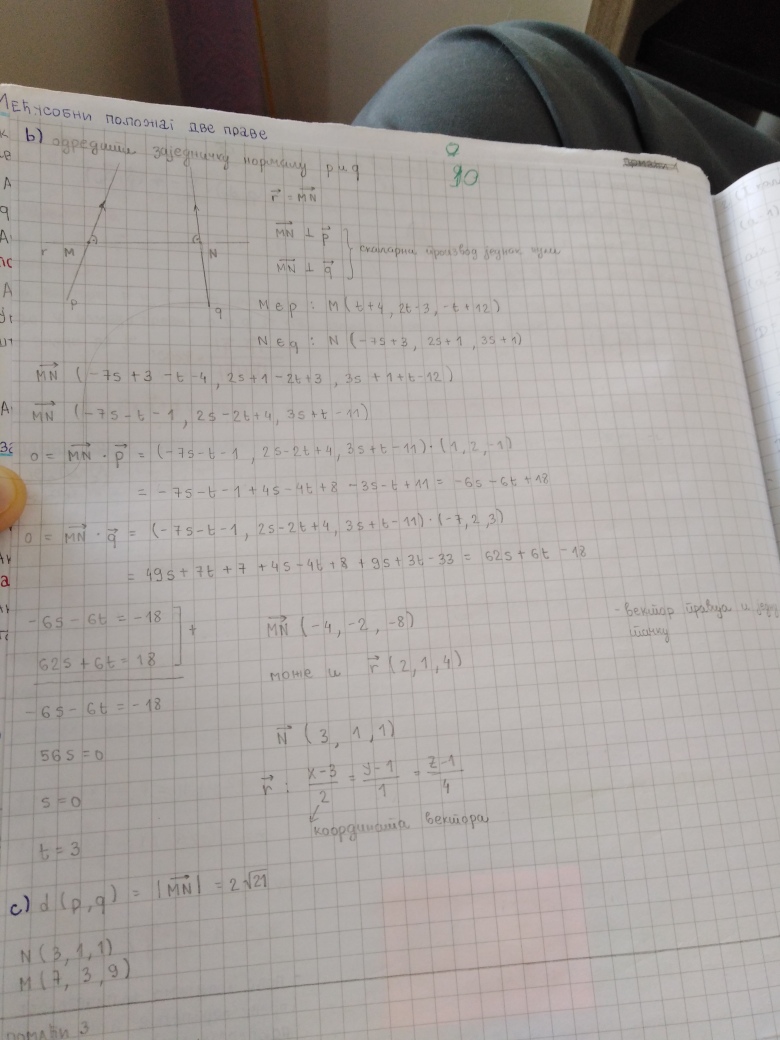 Међусобни положај две праве
b) одредити заједничку нормалу p и q
10
r⃗ = MN⃗
MN⃗ ⊥ p⃗
MN⃗ ⊥ q⃗
скаларни производ једнак нули
r M N
p q
M ∈ p : M (t+4, 2t-3, -t+12)
N ∈ q : N (-7s+3, 2s+1, 3s+1)
MN⃗ (-7s+3-t-4, 2s+1-2t+3, 3s+1+t-12)
MN⃗ (-7s-t-1, 2s-2t+4, 3s+t-11)
0 = MN⃗ · p⃗ = (-7s-t-1, 2s-2t+4, 3s+t-11)·(1,2,-1)
= -7s-t-1+4s-4t+8-3s-t+11 = -6s-6t+18
0 = MN⃗ · q⃗ = (-7s-t-1, 2s-2t+4, 3s+t-11)·(-7,2,3)
= 49s+7t+7+4s-4t+8+9s+3t-33 = 62s+6t-18
-6s-6t = -18
62s+6t = 18
+
-6s-6t = -18
56s=0
s=0
t=3
MN⃗ (-4,-2,-8)
може и r⃗ (2,1,4)
- вектор правца и
тачку
N⃗ (3,1,1)
r⃗ : x-3/2 = y-1/1 = z-1/4
координата вектора
c) d(p,q) = |MN⃗| = 2√21
N(3,1,1)
M(7,3,9)
домаћи 3